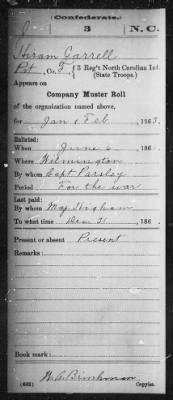 (Confederate.)
3 N.C.
Hiram Carrell
Pvt, Co. F, 3 Reg't North Carolina Inf.
(State Troops.)
Appears on
Company Muster Roll
of the organization named above,
for Jan & Feb, 1863.
Enlisted:
When June 6, 186
Where Wilmington
By whom Capt Parsley
Period For the war
Last paid:
By whom Maj Higham
To what time Dec 31, 186
Present or absent Present
Remarks:
Book mark:
(642)
Copyist.